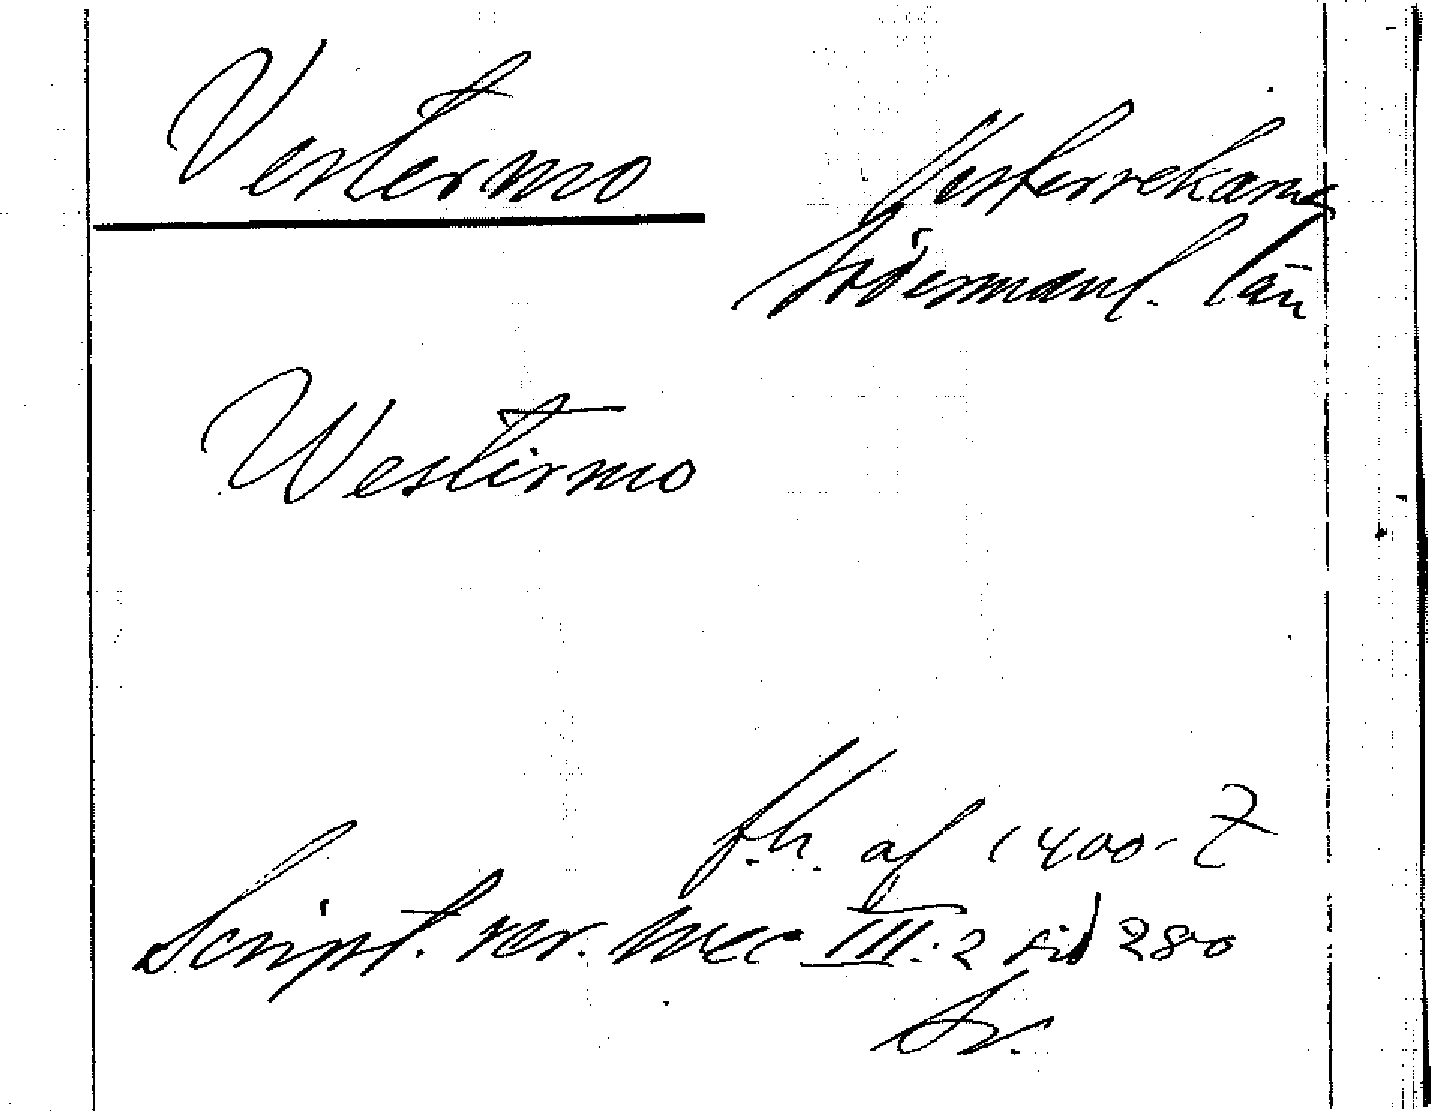 Vestermo
Vesterrekarne
Södermanl. län
Westirmo
f.h. af 1400-t
Script. rer. svec III:2 sid 280
Sv.